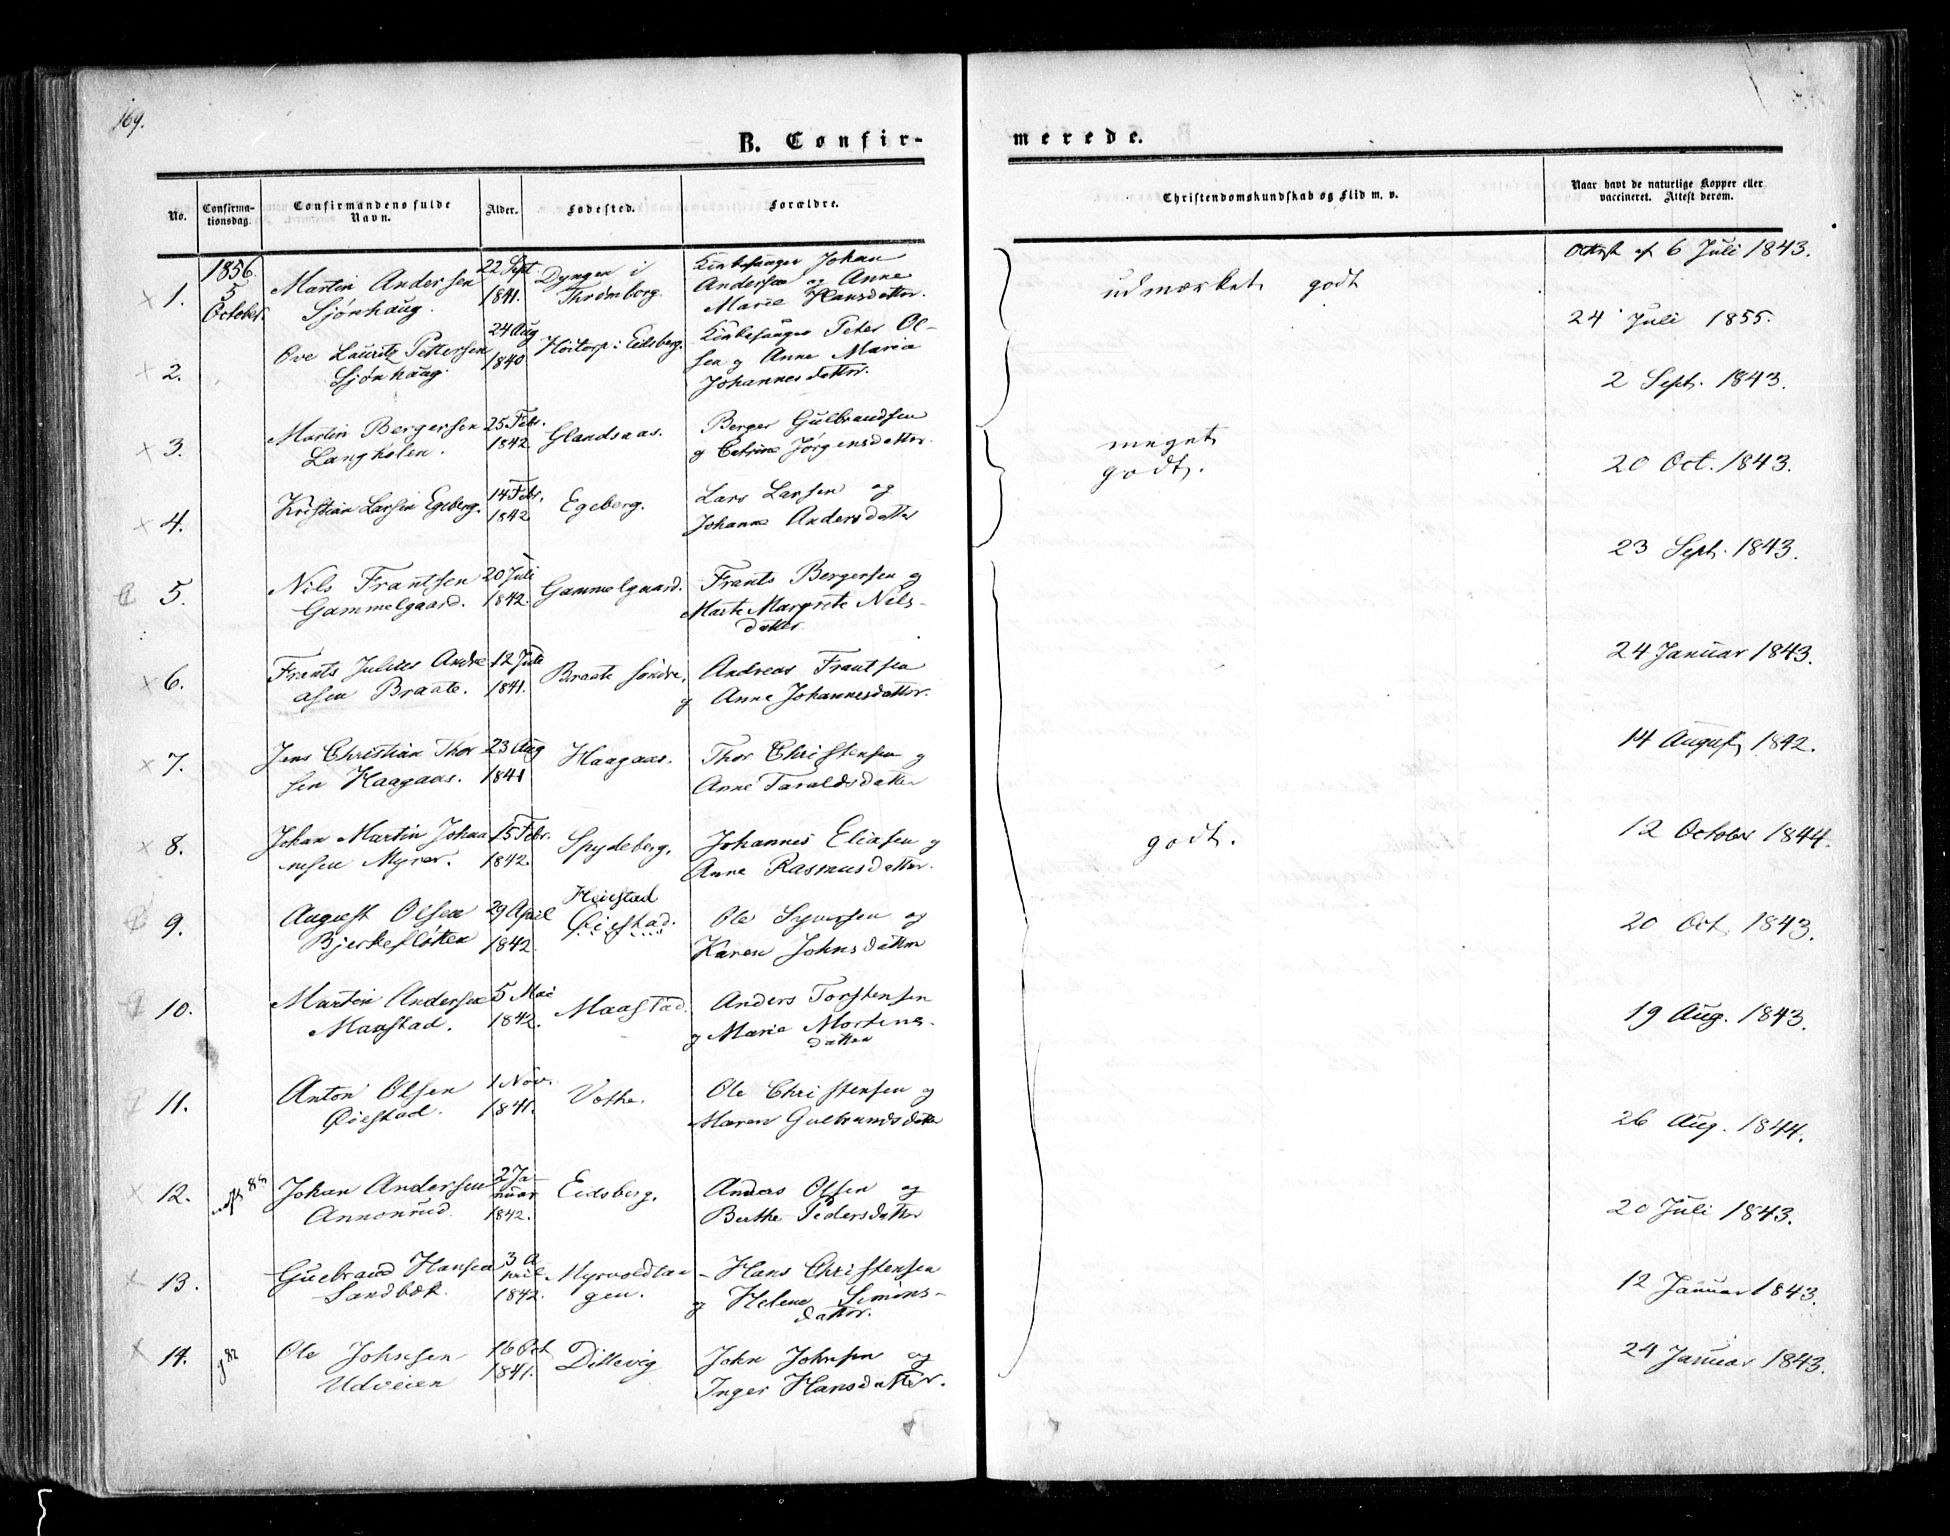 169.
B. Confirmerede.
No. Confirmationsdag. Confirmandens fulde Navn. Alder. Fødested. Forældre. Christendomskundskab og Flid m. v. Naar havt de naturlige Kopper eller vaccineret. Attest derom.
1856.
1. 5 October. Martin Andersen Sjønhaug. 22 Sept 1841. Dyngen i Thrømborg. Kirkesanger Johan Andersen og Anne Marie Hansdatter. udmærket godt Attest af 6 Juli 1843.
2. Ove Lauritz Pettersen Sjønhaug. 24 Aug 1840 Höitorp i Eidsberg. Kirkesanger Peter Olsen og Anne Maria Johannesdatter. 24 Juli 1855.
3. Martin Bergersen Langholen. 25 Febr. 1842. Glandsaas. Berger Gulbrandsen og Catrine Jørgensdatter. meget godt. 2 Sept. 1843.
4. Kristian Larsen Egeberg. 14 Febr. 1842. Egeberg. Lars Larsen og Johanne Andersdatter 20 Oct. 1843.
5. Nils Frantsen Gammelgaard. 20 Juli 1842. Gammelgaard. Frants Bergersen og Marte Margrete Nilsdatter. 23 Sept. 1843.
6. Frants Julius Andreasen Braate. 12 1841. Braate søndre. Andreas Frantsen og Anne Johannesdatter. 24 Januar 1843.
7. Jens Christian Thorsen Haagaas. 23 Aug 1841 Haagaas. Thor Christensen og Anne Taraldsdatter 14 August 1842.
8. Johan Martin Johannesen Myrer. 15 Febr. 1842. Spydeberg. Johannes Eliasen og Anne Rasmusdatter. godt. 12 October 1844.
9. August Olsen Bjerkesløtten 29 April 1842. Høiestad Øiestad. Ole Syversen og Karen Johnsdatter 20 Oct. 1843.
10. Martin Andersen Maastad. 5 Mai 1842. Maastad. Anders Torstensen og Marie Mortensdatter 19 Aug. 1843.
11. Anton Olsen Øiestad. 1 Nov. 1841. Vothe. Ole Christensen og Maren Gulbrandsdatter 26 Aug. 1844.
12. Johan Andersen Annonrud. 2 Januar 1842. Eidsberg. Anders Olsen og Berthe Pedersdatter 20 Juli 1843.
13. Gulbrand Hansen Sandbæk. 3 April 1842. Myrvoldtangen. Hans Christensen og Helene Simonsdatter. 12 Januar 1843.
14. Ole Johnsen Udveien 16 Oct 1841. Dillevig John Johnsen og Inger Hansdatter. 24 Januar 1843.